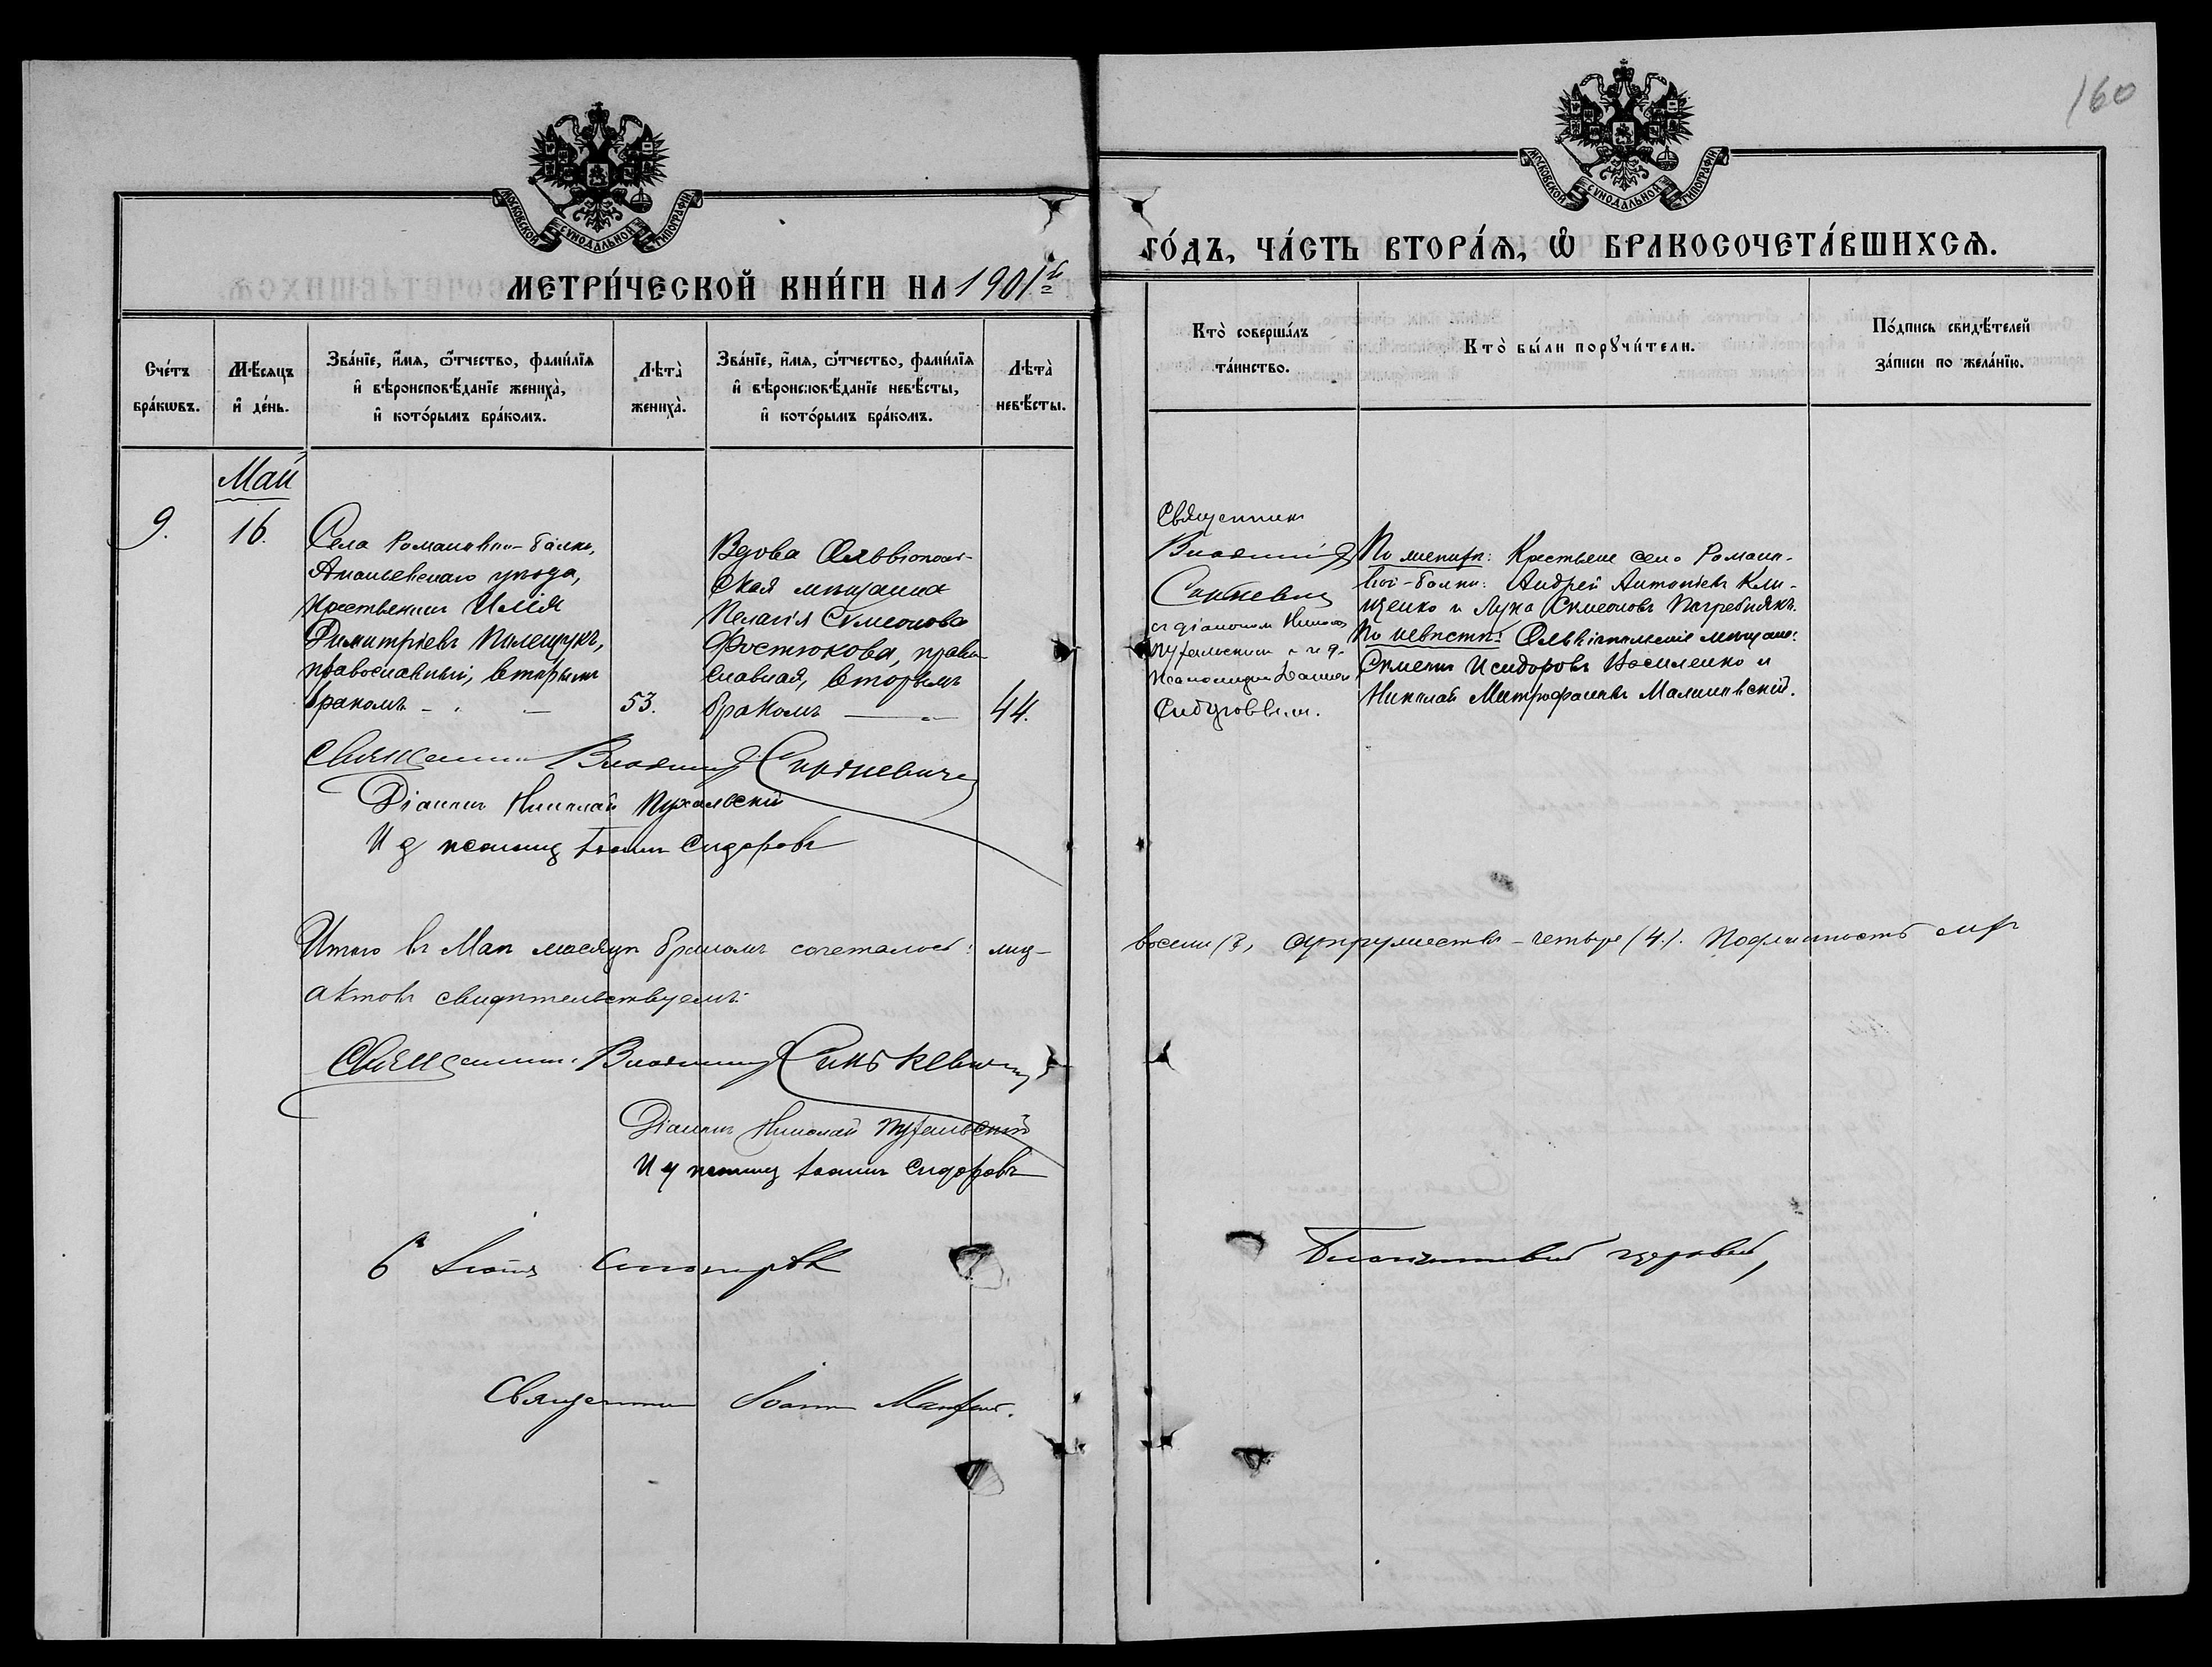 160
МОСКОВСКОЙ СѴНОДАЛЬНОЙ ТИПОГРАФІИ
МОСКОВСКОЙ СѴНОДАЛЬНОЙ ТИПОГРАФІИ
МЕТРИ́ЧЕСКОЙ КНИ́ГИ НА 1901й
ГО́ДЪ, ЧА́СТЬ ВТОРА́Ѧ, Ѡ҆ БРАКОСОЧЕТА́ВШИХСѦ.
Сче́тъ
бра́кѡвъ.
Мѣ́сяцъ
и҆ де́нь.
Зва́нїе, и҆́мя, ѻ҆́тчество, фами́лїя
и҆ вѣроисповѣ́данїе жениха̀,
и҆ кото́рымъ бра́комъ.
Лѣта̀
жениха̀.
Зва́нїе, и҆́мя, ѻ҆́тчество, фами́лїя
и҆ вѣроисповѣ́данїе невѣ́сты,
и҆ кото́рымъ бра́комъ.
Лѣта̀
невѣ́сты.
Кто̀ соверша́лъ
та́инство.
Кто̀ бы́ли порꙋчи́тели.
По́дпись свидѣ́телей
за́писи по жела́нїю.
Май
9.
16.
Села Романовой-Балки,
Ананьевскаго уѣзда,
крестьянинъ Илія
Димитріевъ Полещукъ,
православный, вторымъ
бракомъ
53.
Вдова Ольвіополь-
ская мѣщанка
Пелагія Симеонова
Фостюкова, право-
славная, вторымъ
бракомъ
44.
Священникъ
Владимір
Синькевич
съ діакономъ Никола
Пухальскимъ и и. д.
псаломщик
Сидоровымъ.
По женихѣ: Крестьяне села Романо-
вой-Балки: Андрей Антоніевъ Кли-
щенко и Лука Симеоновъ Погребнякъ.
По невѣстѣ: Ольвіопольскіе мѣщане:
Симеонъ Исидоровъ Василенко и
Николай Митрофановъ Малиновскій.
Священник Владимір Синькевичъ
Діаконъ Николай Пухальскій
И д псаломщ Іоаннъ Сидоровъ
Итого въ Маѣ мѣсяцѣ бракомъ сочеталось: лиц-
восемь (8), супружествъ - четыре (4). Подлинность сихъ
актовъ свидѣтельствуемъ:
Священникъ Владимір Синькевич
Діаконъ Николай Пухальскій
И д псаломщ Іоаннъ Сидоровъ
6 Іюня
Священник Іоанн